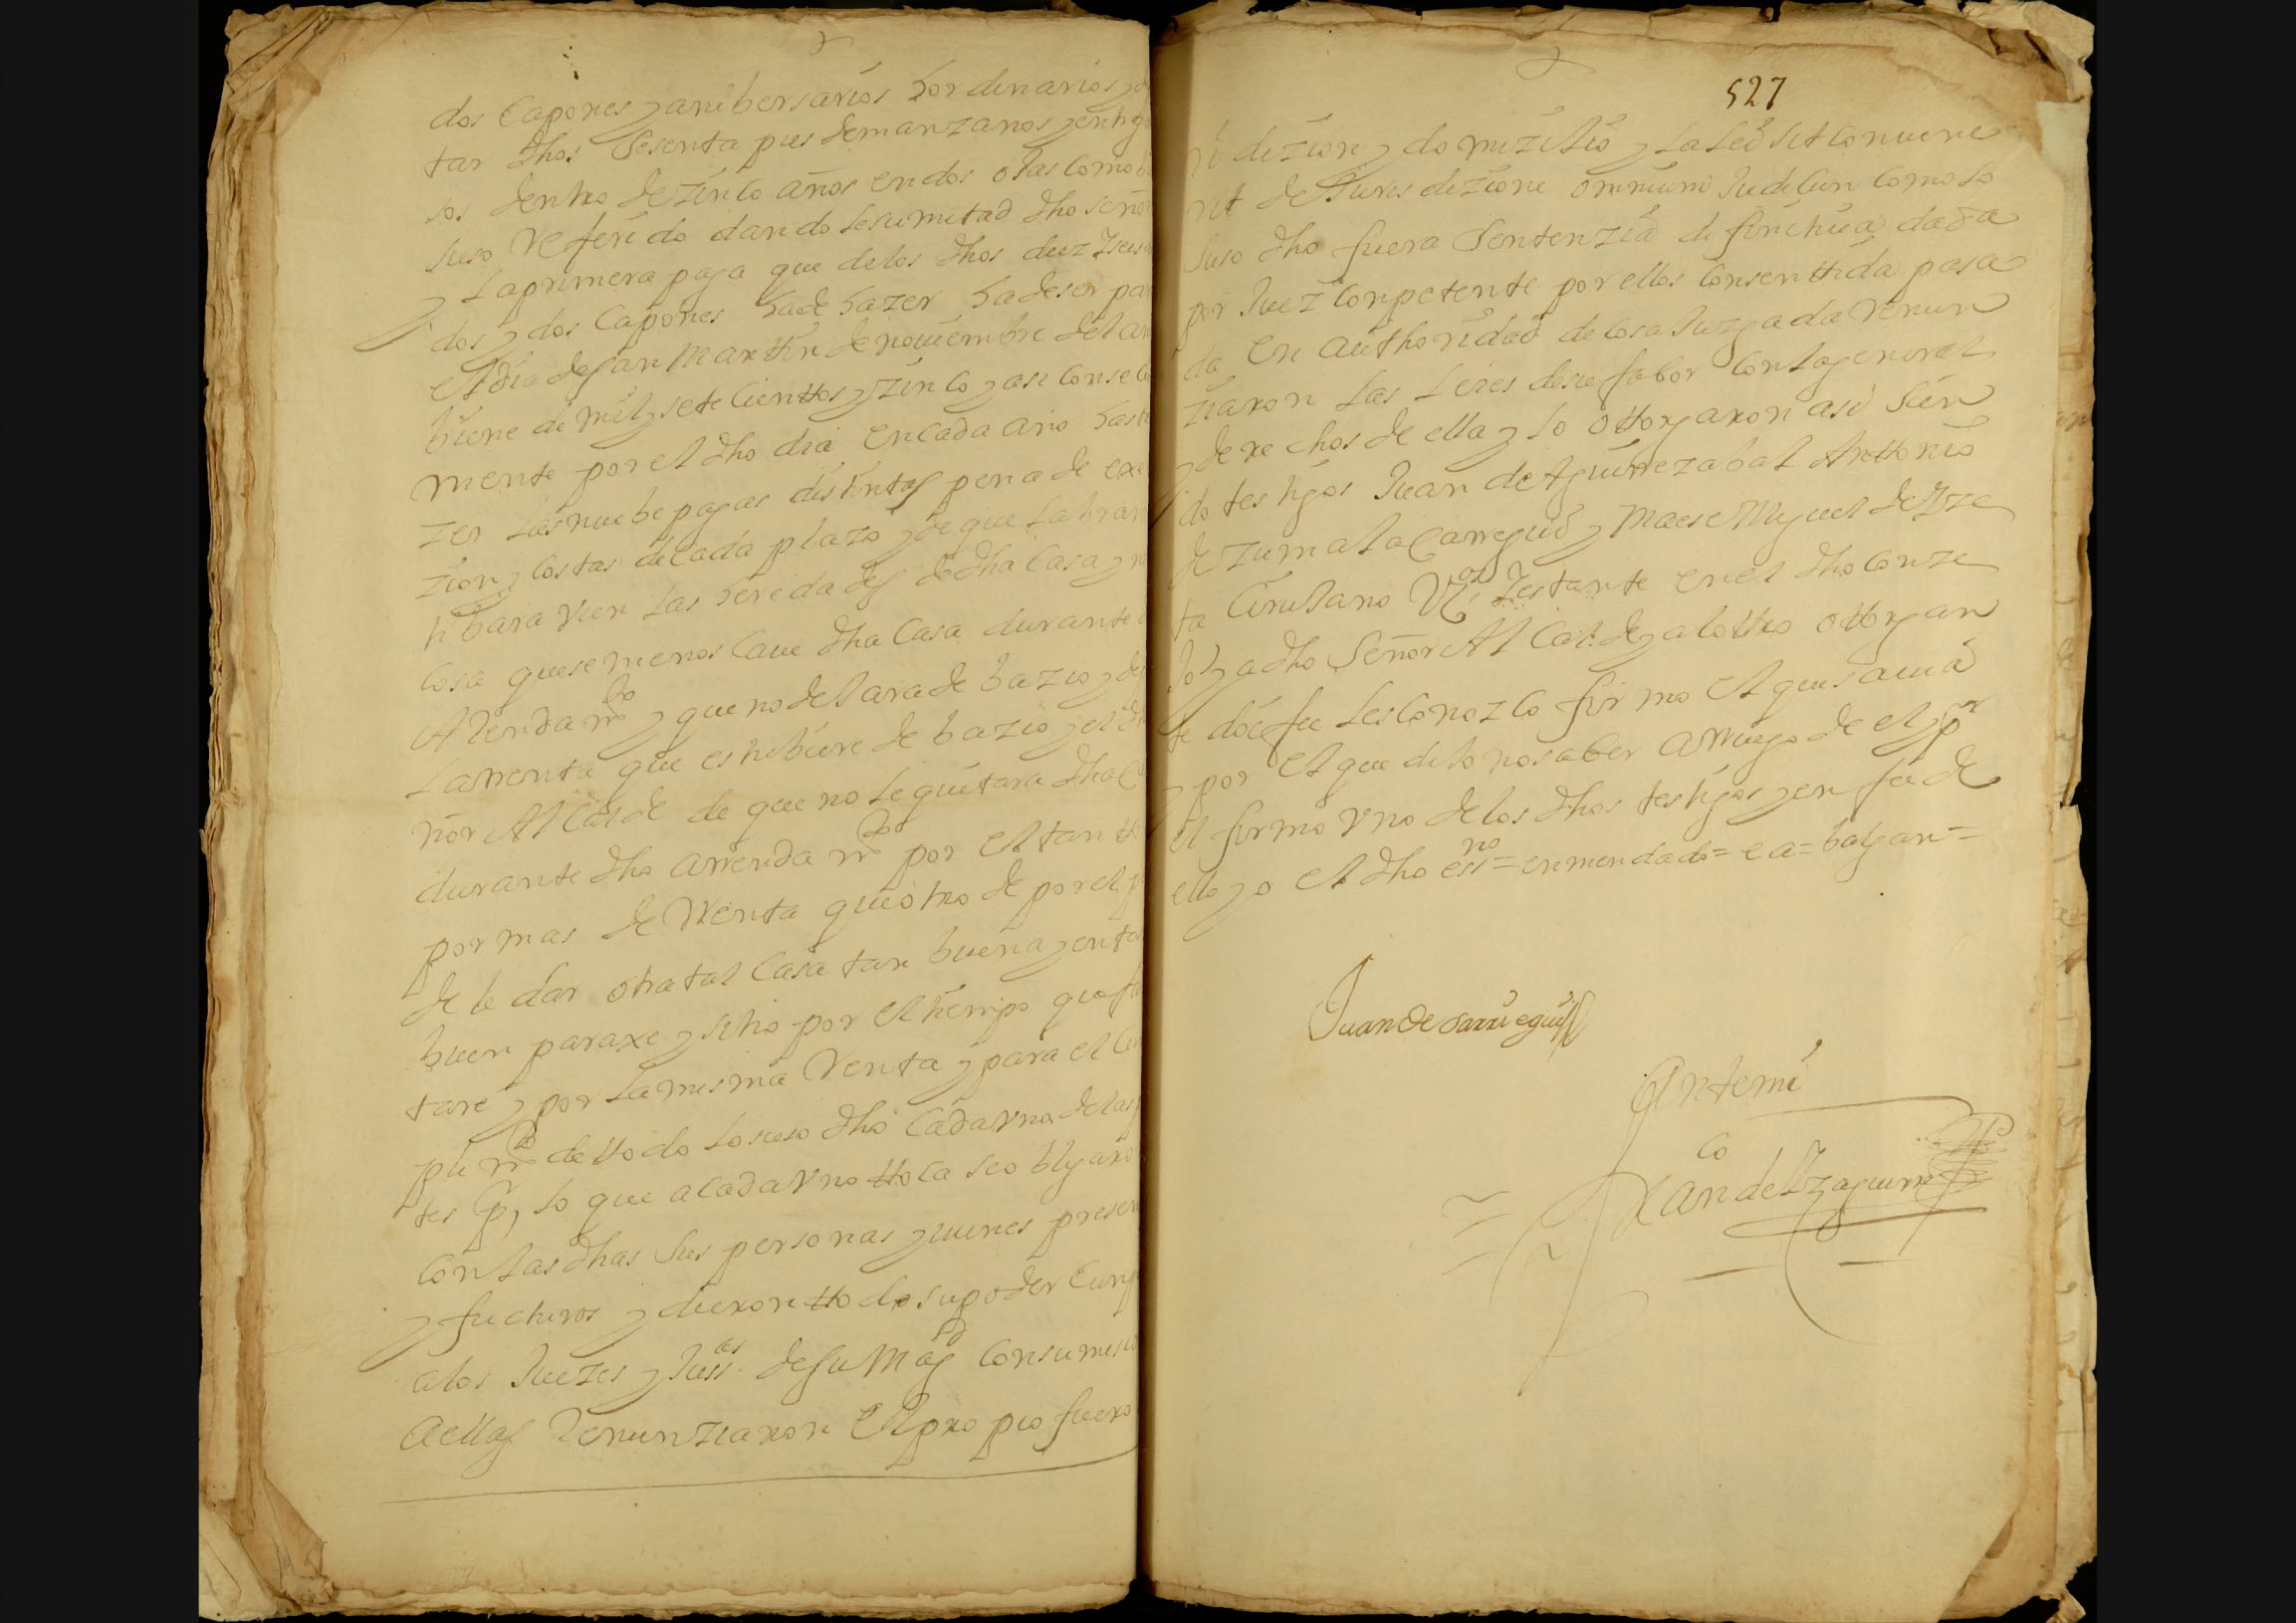 dos Capones y anibersarios hordinarios y
tar dhos Sesenta pies de manzanos y
sos dentro de zinco años en dos oias como
suso referido dandole su mitad dho señor
y la primera paga que de los dhos diez y seis
dos y dos Capones ha de hazer ha de ser para
el dia de san Marttin de nouiembre del
biene de mil y sete Cienttos y zinco y asi
mente por el dho dia en cada año hasta
zer las nuebe pagas distintas pena de exe
zion y costas de cada plazo y de que labrara
tibara vien las heredades de dha Casa y
cosa que se menos Caue dha Casa durante
Arrendamto y que no dejara de bazio
la rrenta que estubiere de bazio y el
ñor Alcalde de que no le quitara dha
durante dho arrendamto por el tantto
por mas de rrenta que otro de por el
de le dar otra tal Casa tan buena y en
buen paraxe y sitio por el tiempo que
tare y por la misma Renta y para el
plimto de ttodo lo suso dho Cada vna de las
tes pr lo que a cada vno ttoca se obligaro
con las dhas sus personas y uienes
y fuctiros y dieron ttodo su poder
a los Juezes y Justas de su Magd con
aellas Renunziaron El propio fuero
527
ridizion y domizilio y la leÿ sit conuene
rit de Jurisdizione omnium Judicun como lo
suso dho fuera Sentenzia difinitiua dada
por Juez conpetente por ellos consenttida pasa
da en authoridad de cosa Juzgada renun
ziaron las leies de su fabor con la general
y derechos de ella y lo ottorgaron asi sien
do testigos Juan de Aguirrezabal Anttonio
de zumalacarregui y Maese Miguel de
ta Cirujano Vos Y estante en el dho conze
jo y a dho Señor Alcalde y al ottro ottorgan
te doi fee les conozco firmo el que sauia
y por el que dijo no saber a rruego de el y pr
el firmo vno de los dhos testigos y en fee de
ello yo el dho essno = enmendado = e a = balgan =
Juan de sarriegui
Antemi
Franco de Yzaguirre